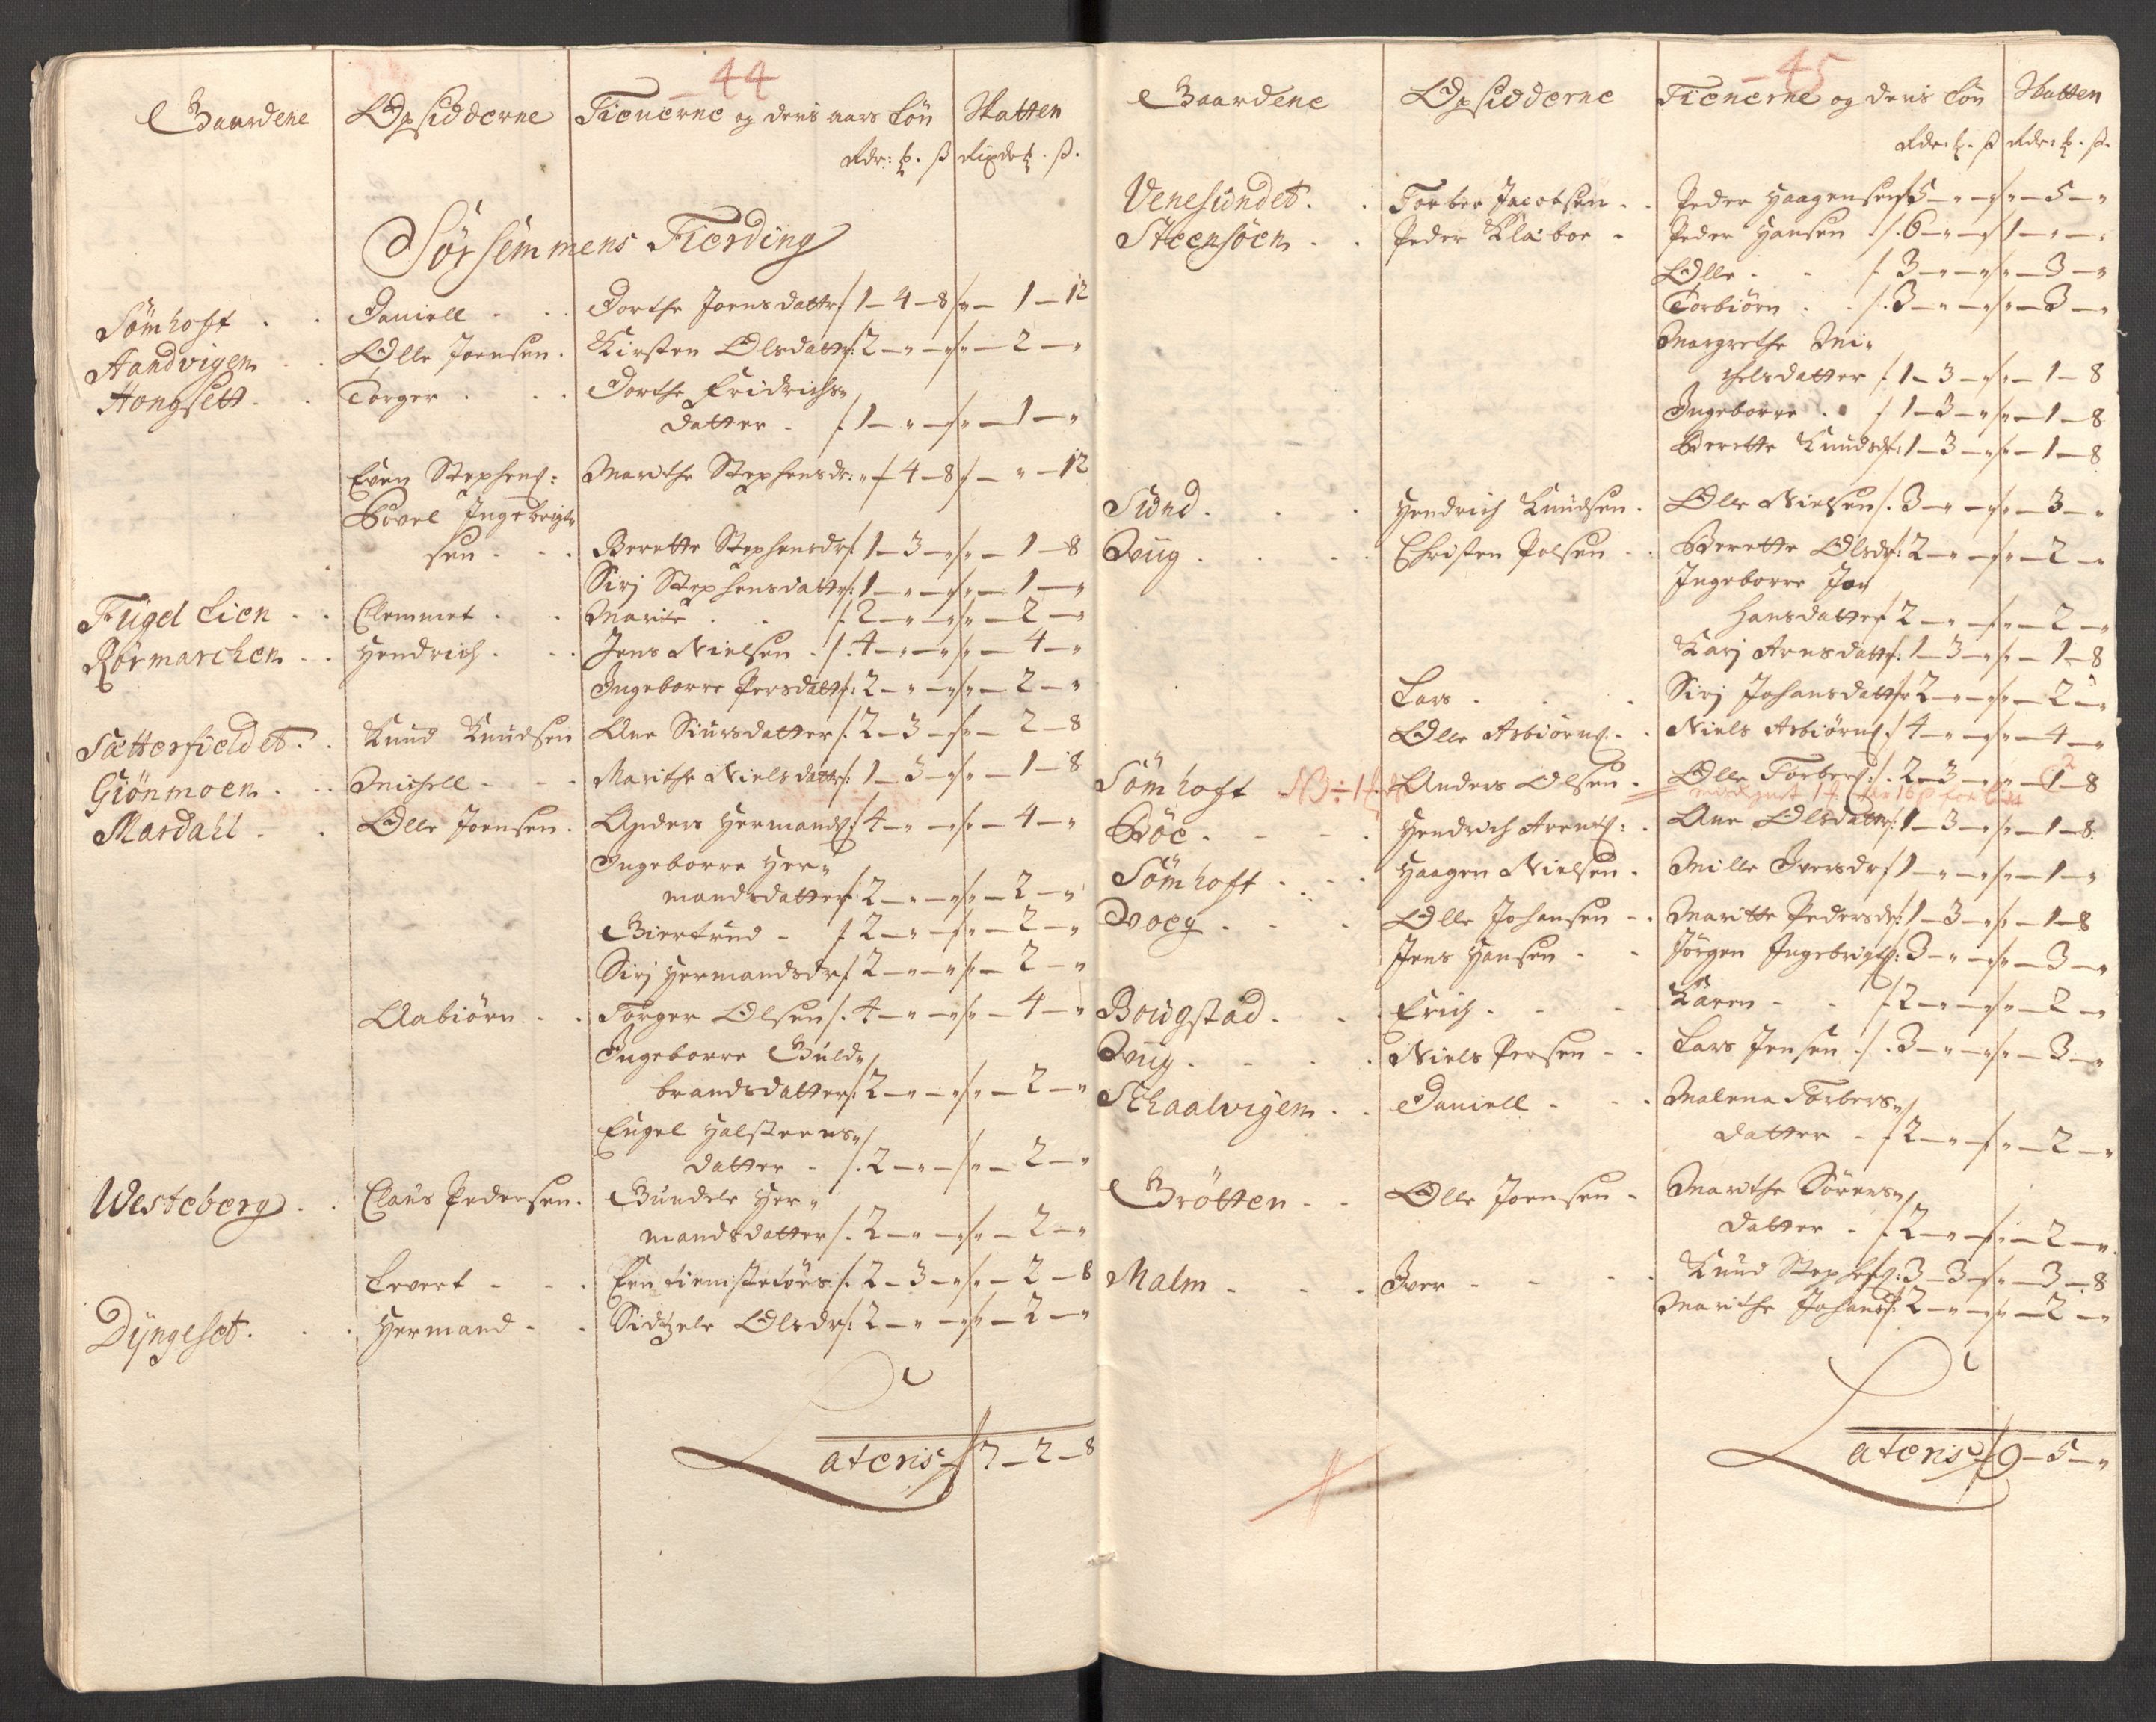 44
Gaardene Opsidderne Tienerne og deris aars Løn Skatten
Rdr: ß Rixdr ß
Sør semmens Fierding
Sømhofft . . Daniell . . Dorthe Joensdattr 1 - 4 - 8 " - 1 - 12
Aandvigen . . Olle Joensen . Kirsten Olsdattr: 2 - " - " " - 2 - "
Hongsett . . Torger . . Dorthe Fridrichs-
datter . 1 - " - " " - 1 - "
Even Stephens: Marithe Stephensdr: " - 4 - 8 " - " - 12
Povel Ingebrigt-
sen . . Berette Stephensdr 1 - 3 - " " - 1 - 8
Sirj Stephensdattr: 1 - " - " " - 1 - "
Fugel Lien . . Clemmet . . Marite . . 2 - " - " " - 2 - "
Rørmarchen . . Hendrich . . Jens Nielsen . 4 - " - " " - 4 - "
Ingeborre Persdattr: 2 - " - " " - 2 - "
Sætterfieldet . . Knud Knudsen Ane Siursdatter 2 - 3 - " " - 2 - 8
Giönmoen . . Michell . . Marithe Nielsdattr: 1 - 3 - " " - 1 - 8
Mardahl . . Olle Joensen . Anders Hermands: 4 - " - " " - 4 - "
Ingeborre Her-
mandsdatter 2 - " - " " - 2 - "
Giertrud . 2 - " - " " - 2 - "
Sirj Hermandsdr 2 - " - " " - 2 - "
Aabiörn . . Torger Olsen . 4 - " - " " - 4 - "
Ingeborre Guld-
brandsdatter 2 - " - " " - 2 - "
Engel Halsteens-
datter . 2 - " - " " - 2 - "
Westeberg . . Claus Pedersen . Gundele Her-
mandsdatter . 2 - " - " " - 2 - "
Levert . . Een tienistetöes . 2 - 3 - " " - 2 - 8
Dÿngeset . . Hermand . . Sidzele Olsdr: 2 - " - " " - 2 - "
Lateris 7 - 2 - 8
45
Gaardene Opsidderne Tienerne og deris Løn Skatten
Rdr: ß Rdr: ß
Venesundet . . Torber Jacobsen . . Peder Haagensen 5 - " - " " - 5 - "
Steensöen . . Peder Klæboe . Peder Hansen . 6 - " - " 1 - " - "
Olle . . 3 - " - " " - 3 - "
Torbiörn . . 3 - " - " " - 3 - "
Margrethe Mi-
chelsdatter 1 - 3 - " " - 1 - 8
Ingeborre . 1 - 3 - " " - 1 - 8
Berette Knudsdr: 1 - 3 - " " - 1 - 8
Sund . . . Hendrich Knudsen . Olle Nielsen . 3 - " - " " - 3 - "
Dvug . . . Christen Polsen . . Berette Olsdr: 2 - " - " " - 2 - "
Ingeborre Jo-
hansdatter 2 - " - " " - 2 - "
Karj Arnsdattr: 1 - 3 - " " - 1 - 8
Lars . . . Sirj Johansdatter 2 - " - " " - 2 - "
Olle Asbiörns: . Niels Asbiörns 4 - " - " " - 4 - "
Sömhofft NB Anders Olsen . Olle Torbers: . 2 - 3 - " " - 1 - 8
Böe . . . Hendrich Arents: . Ane Olsdattr: 1 - 3 - " " - 1 - 8
Sömhofft . . . Haagen Nielsen . Mille Iversdr 1 - " - " " - 1 - "
Dvoeg . . . Olle Johansen . . Maritte Pedersdr: 1 - 3 - " " - 1 - 8
Jens Hansen . . Jörgen Ingebrigts: 3 - " - " " - 3 - "
Bougstad . . . Erich . . . Karen . . 2 - " - " " - 2 - "
Dvug . . . Niels Persen . . Lars Jensen . 3 - " - " " - 3 - "
Schaalvigen . . Daniell . . . Malena Torbers-
datter . 2 - " - " " - 2 - "
Grötten . . Olle Joensen . Marithe Sörens-
datter . 2 - " - " " - 2 - "
Malm . . . Iver . . . Knud Stephs: 3 - 3 - " " - 3 - 8
Marithe Johansd: 2 - " - " " - 2 - "
Lateris 9 - 5 - "